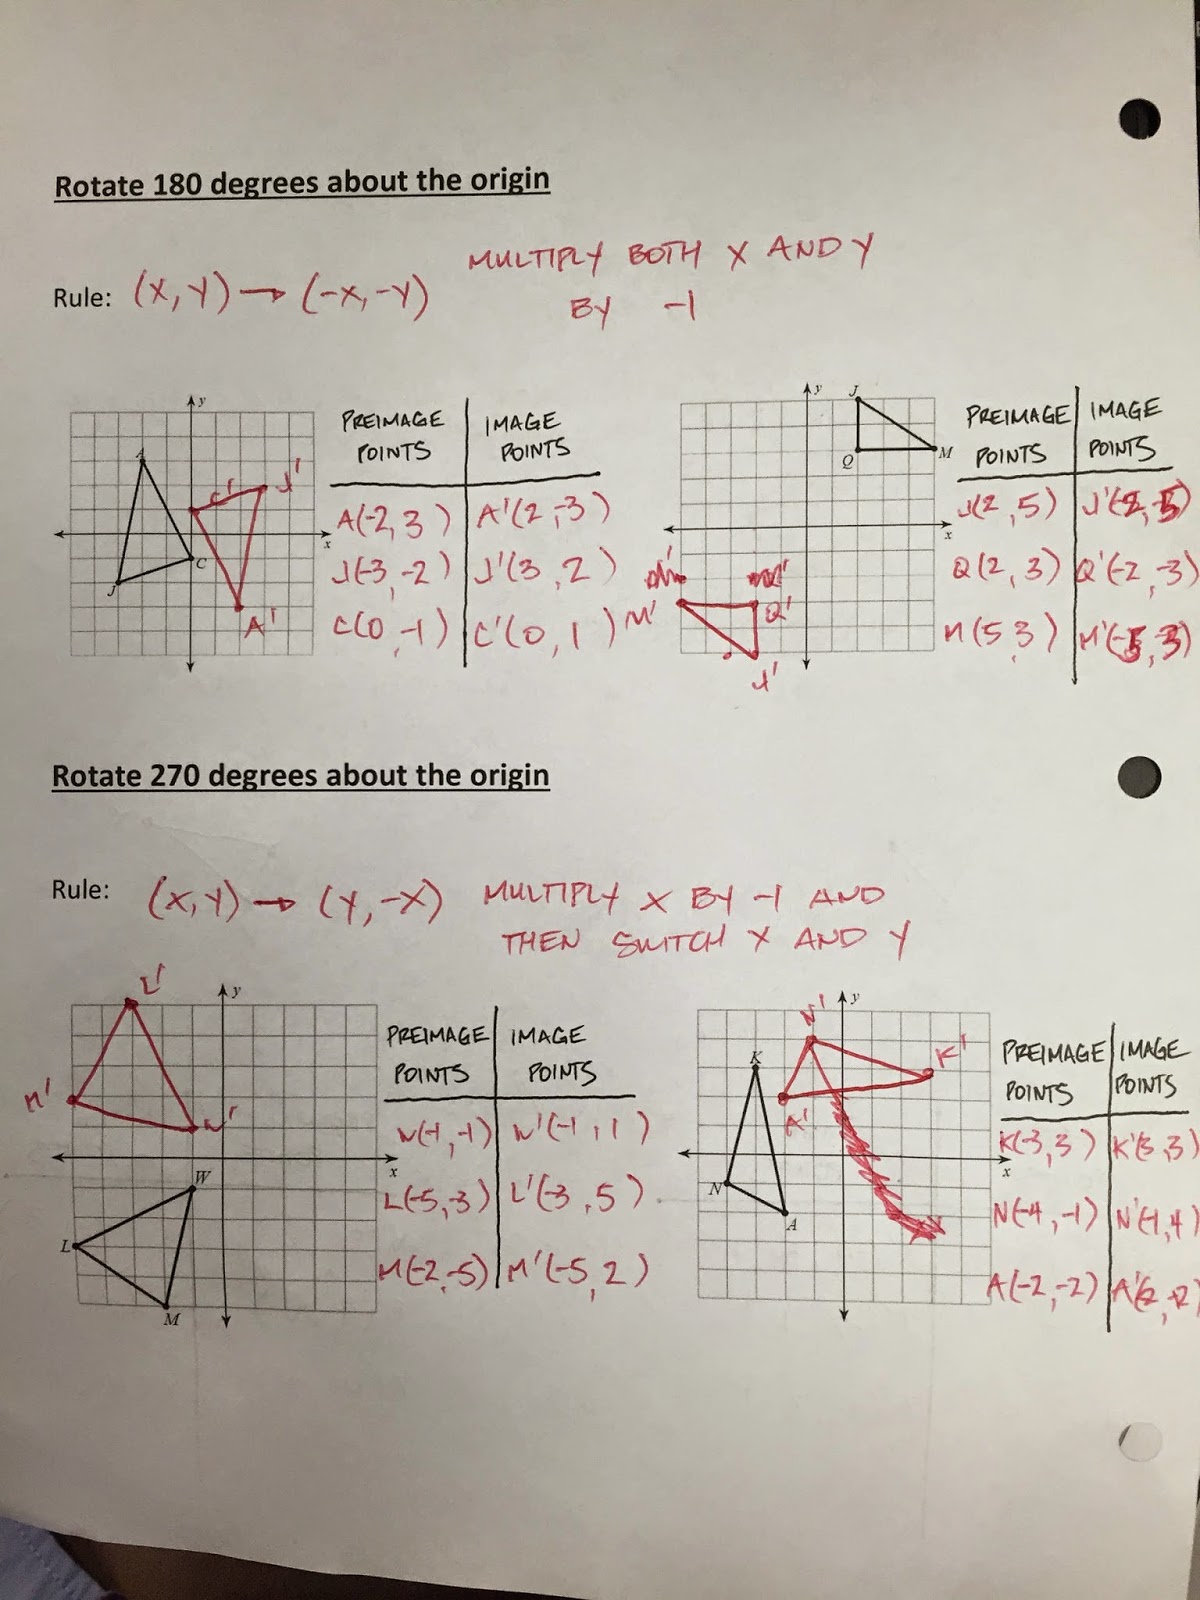 Rotate 180 degrees about the origin
MULTIPLY BOTH X AND Y
BY -1
Rule: (X,Y) → (-X,-Y)
y
x
A
J
C
C'
J'
A'
PREIMAGE POINTS IMAGE POINTS
A(-2,3) A'(2,-3)
J(-3,-2) J'(3,2)
C(0,-1) C'(0,1)
y
x
J
Q
M
M'
Q'
J'
PREIMAGE POINTS IMAGE POINTS
J(2,5)
Q(2,3) Q'(-2,-3)
M(5,3) M'(-5,-3)
Rotate 270 degrees about the origin
Rule: (X,Y) → (Y,-X) MULTIPLY X BY -1 AND
THEN SWITCH X AND Y
y
x
L'
M'
W'
W
L
M
PREIMAGE POINTS IMAGE POINTS
W(-1,-1) W'(-1,1)
L(-5,-3) L'(-3,5)
M(-2,-5) M'(-5,2)
y
x
N'
K'
A'
K
N
A
PREIMAGE POINTS IMAGE POINTS
K(-3,3) K'(3,3)
N(-4,-1) N'(-1,4)
A(-2,-2)